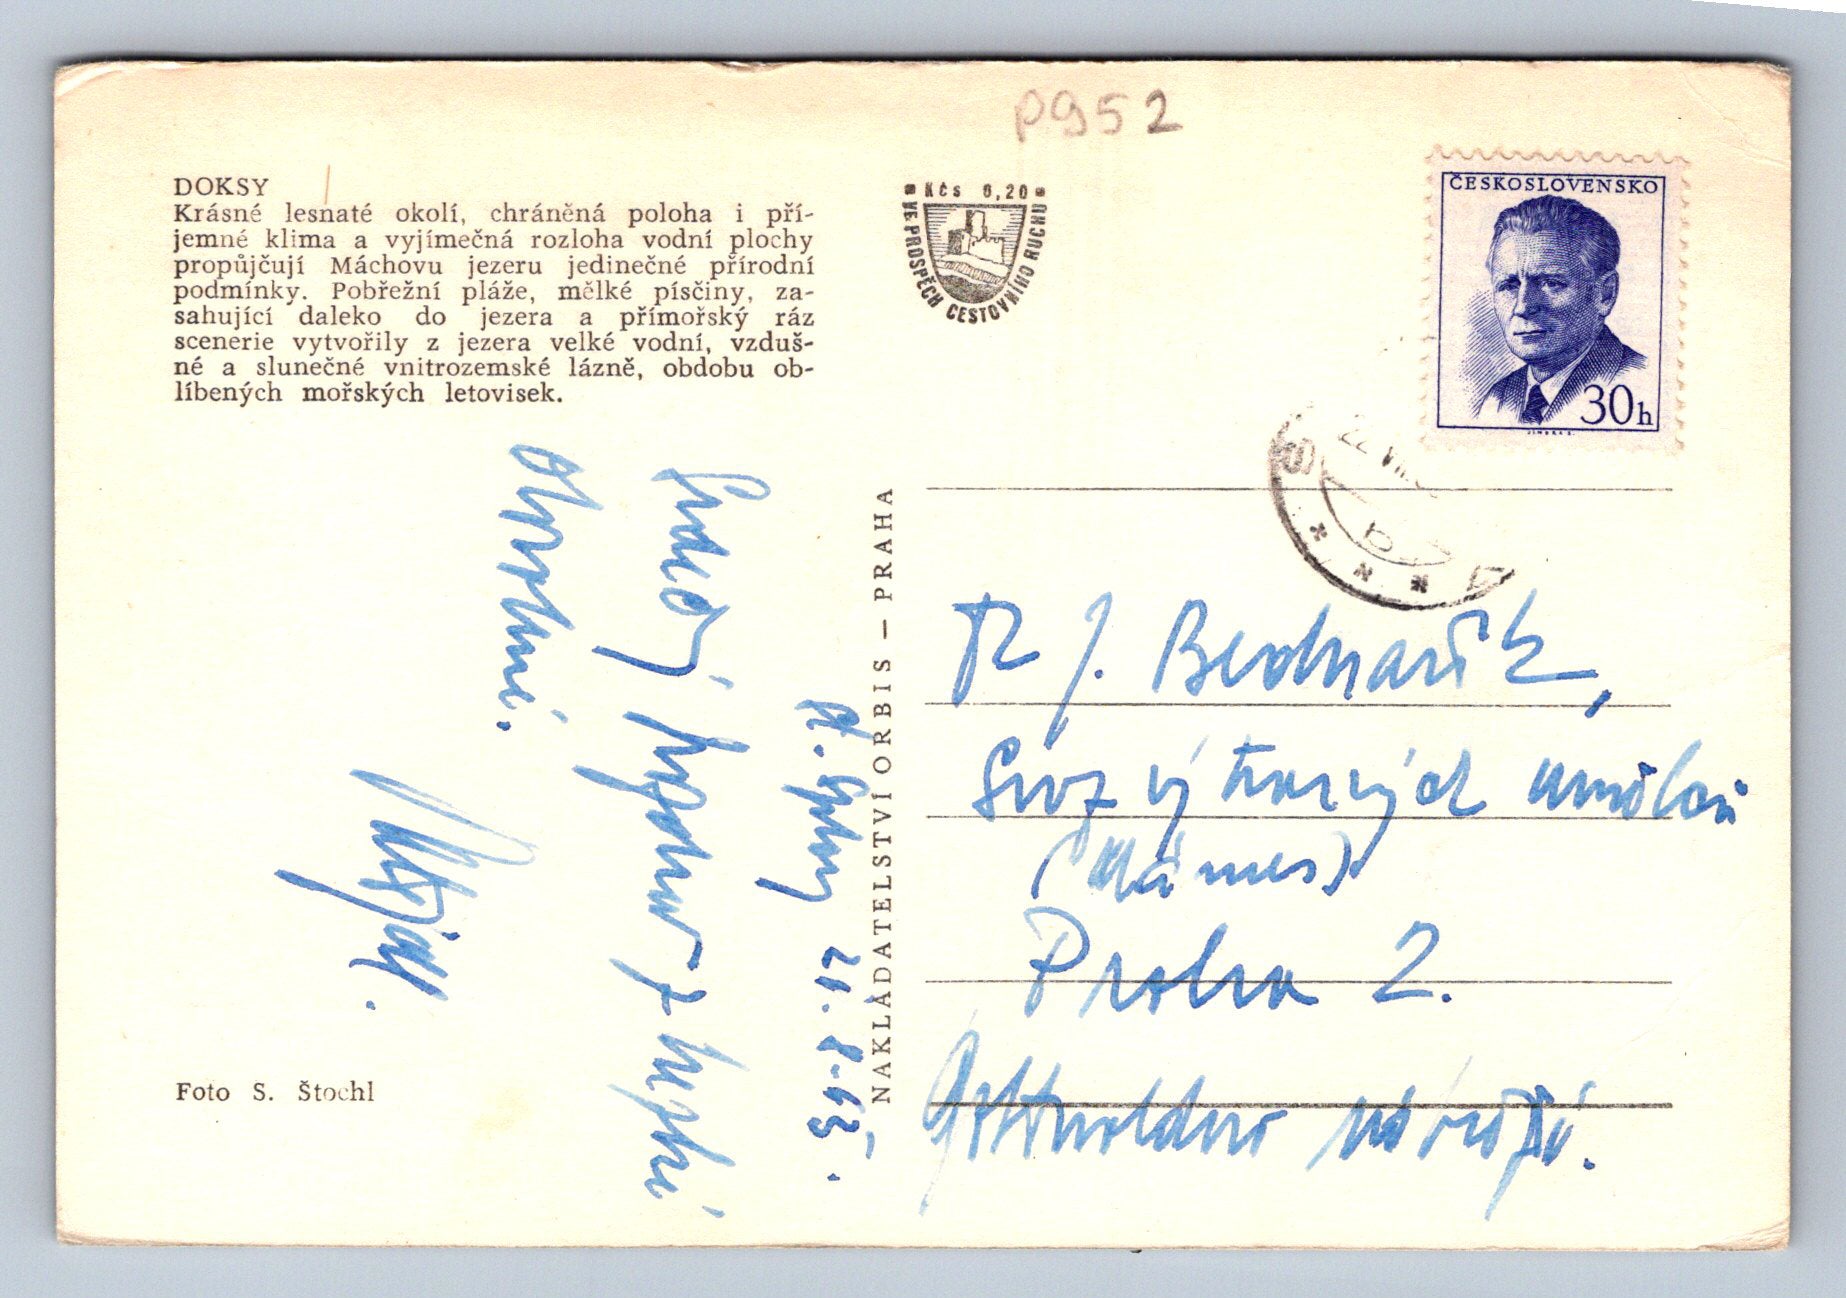 P952
DOKSY
Krásné lesnaté okolí, chráněná poloha i pří-
jemné klima a vyjímečná rozloha vodní plochy
propůjčují Máchovu jezeru jedinečné přírodní
podmínky. Pobřežní pláže, mělké písčiny, za-
sahující daleko do jezera a přímořský ráz
scenerie vytvořily z jezera velké vodní, vzduš-
né a slunečné vnitrozemské lázně, obdobu ob-
líbených mořských letovisek.
Kčs 0,20
VE PROSPĚCH CESTOVNÍHO RUCHU
ČESKOSLOVENSKO
30h
22 VIII
b
20.8.63
Foto S. Štochl
NAKLADATELSTVÍ ORBIS — PRAHA
J. Bednařík,
Svaz výtvarných umělců
(Mánes)
Praha 2.
Gottwaldovo nábřeží.